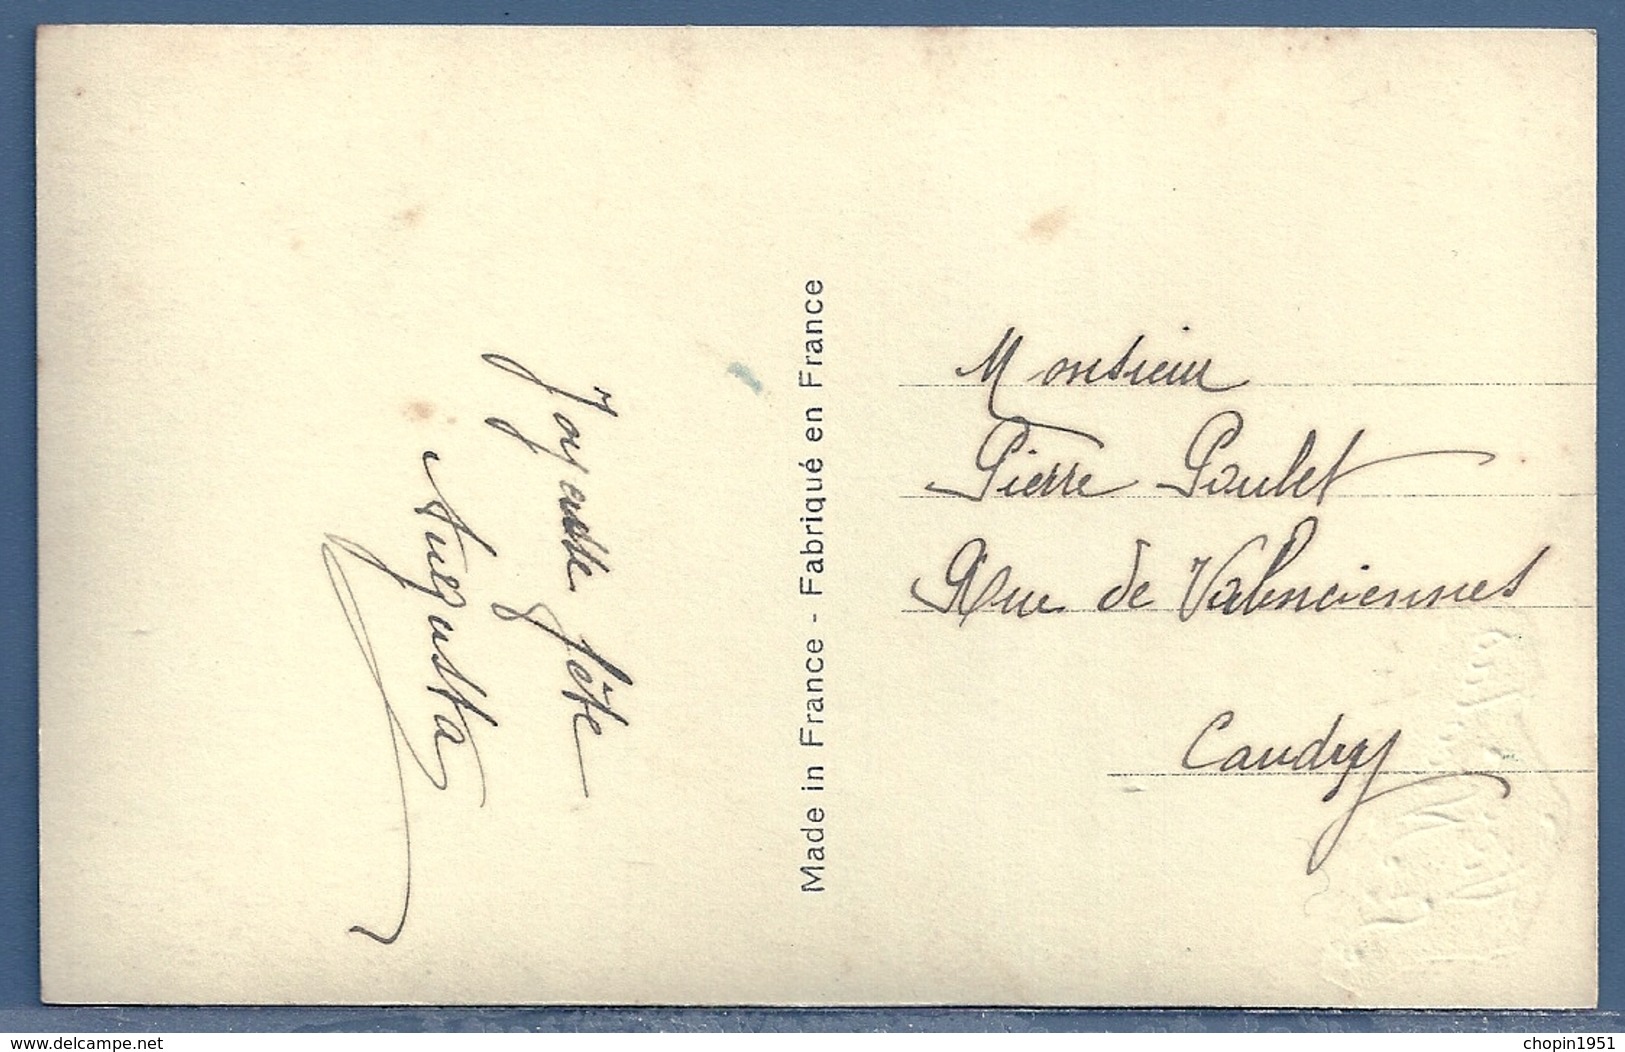 Joyeuse fête
Augusta
Made in France - Fabriqué en France
Monsieur
Pierre Poulet
Rue de Valenciennes
Caudry
www.delcampe.net
chopin1951